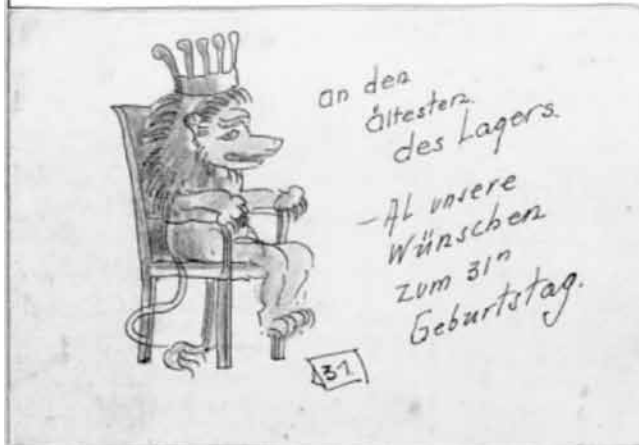 an den
ältesten
des Lagers.
-Al unsere
Wünschen
zum 31n
Geburtstag.
31